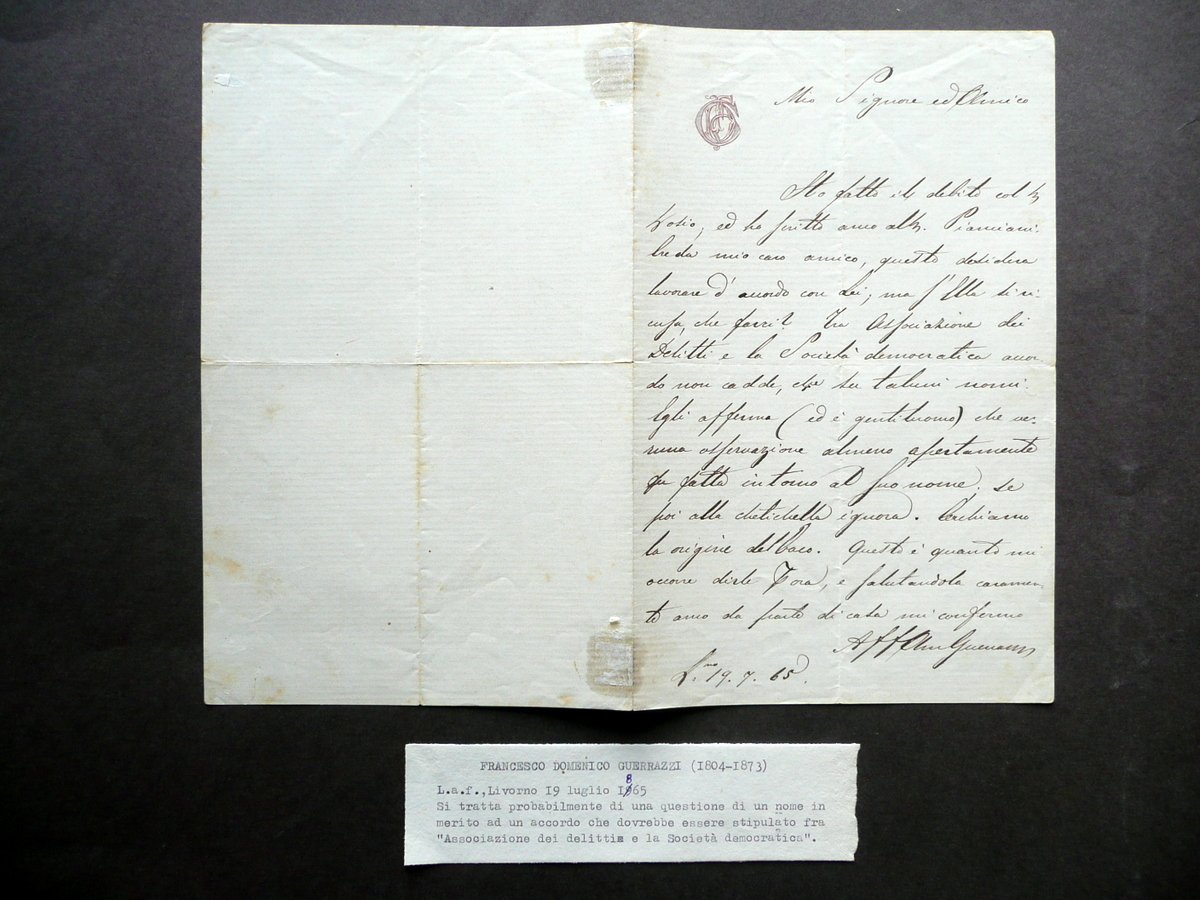 Mio Signore ed Amico
Ho fatto il debito col
ed ho scritto anco al Pianciani.
mio caro amico, questo desidera
lavorare d'accordo con Lei; ma s'Ella si ri-
cusa, che farci? Tra Associazione dei
Delitti e la Società democratica accor-
do non cadde, che su taluni nomi.
Egli afferma (ed è gentiluomo) che ve-
runa osservazione almeno apertamente
fu fatta intorno al suo nome; se
poi alla chetichella ignora. Cerchiamo
la origine del baco. Questo è quanto mi
occorre dirle e salutandola caramen-
te anco da parte di casa mi confermo
Aff Am Guerrazzi
L. 19. 7. 65.
FRANCESCO DOMENICO GUERRAZZI (1804-1873)
L.a.f.,Livorno 19 luglio 1865
Si tratta probabilmente di una questione di un nome in
merito ad un accordo che dovrebbe essere stipulato fra
"Associazione dei delitti e la Società democratica".